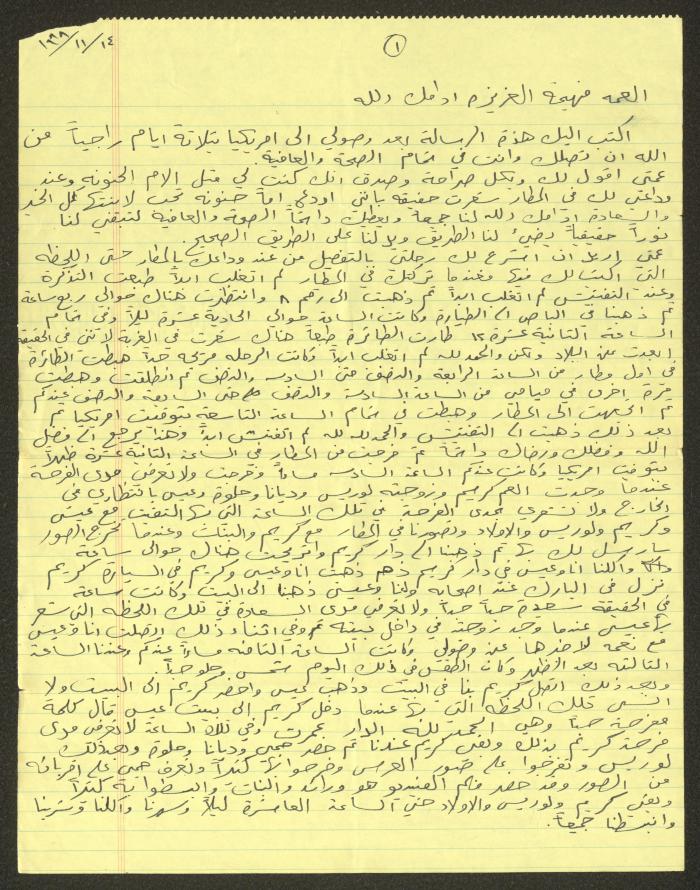 ١٤/١١/١٩٨٨
١
العمه فهيمة العزيزه ادامك الله
اكتب اليك هذه الرسالة بعد وصولي الى امريكيا بثلاثة ايام راجياً من
الله ان تصلك وانت في تمام الصحة والعافية.
عمتي اقول لك وبكل صراحة وصدق انك كنت لي مثل الام الحنونه وعند
وداعي لك في المطار شعرت حقيقه بانني اودع اماً حنونه تحب لابنتها كل الخير
والسعادة ادامك الله لنا جميعاً ويعطيك دائماً الصحة والعافية لتبقي لنا
نوراً حقيقياً يضيء لنا الطريق ويدلنا على الطريق الصحيح.
عمتي اريد ان اشرح لك رحلتي بالتفصيل من عند وداعك بالمطار حتى اللحظه
التي اكتب لك فيها فعندما تركتك في المطار لم اتغلب ابداً طبعت التذكرة
وعند التفتيش لم اتغلب ابداً ثم ذهبت الى رقم ٨ وانتظرت هناك حوالي ربع ساعة
ثم ذهبنا في الباص الى الطيارة وكانت الساعة حوالي الحادية عشرة ليلاً وفي تمام
الساعة الثانية عشرة ١٢ طارت الطائرة طبعاً هناك شعرت في الغربة لانني في الحقيقة
ابعدت عن البلاد ولكن والحمد لله لم اتغلب ابداً وكانت الرحله مريحه جداً هبطت الطائرة
في اول مطار من الساعة الرابعة والنصف حتى السادسه والنصف ثم انطلقت وهبطت
مرة اخرى في من الساعة السادسة والنصف حتى السابعة والنصف عندكم
ثم اتجهت الى المطار وهبطت في تمام الساعة التاسعة بتوقيت امريكيا ثم
بعد ذلك ذهبت الى التفتيش والحمد لله لم اتفتش ابداً وهذا يرجع الى فضل
الله وفضلك ورضاك دائماً ثم خرجت من المطار في الساعة الثانية عشرة ظهراً
بتوقيت امريكيا وكانت عندكم الساعة السادسه مساءً وخرجت ولا تعرفي مدى الفرحة
عندما وجدت العم كريم وزوجته لوريس وديانا وحلوة وعيسى بانتظاري في
الخارج ولا تتصوري مدى الفرحة في تلك الساعة التي بها التقيت مع عيسى
وكريم ولوريس والاولاد وتصورنا في المطار مع كريم والبنات وعندما تخرج الصور
سارسل لك بها ثم ذهبنا الى دار كريم واتريحت هناك حوالي ساعة
واكلنا انا وعيسى في دار كريم ثم ذهبت انا وعيسى وكريم في السيارة كريم
نزل في البارك عند اصحابه وانا وعيسى ذهبنا الى البيت وكانت ساعة
في الحقيقة سعيدة جداً جداً ولا تعرفي مدى السعادة في تلك اللحظه التي شعر
بها عيسى عندما وجد زوجته في داخل بيته ثم وفي اثناء ذلك اتصلت انا وعيسى
مع نعمه لاخبرها عن وصولي وكانت الساعة الثامنه مساءً عندكم وعندنا الساعة
الثالثه بعد الظهر وكان الطقس في ذلك اليوم شمس وحلو جداً.
وبعد ذلك اتصل كريم بنا في البيت وذهب عيسى واحضر كريم الى البيت ولا
انسى تلك اللحظه التي بها عندما دخل كريم الى بيت عيسى قال كلمة
مفرحة جداً وهي الحمد لله الدار عمرت وفي تلك الساعة لا تعرفي مدى
فرحة كريم بذلك وبقى كريم عندنا ثم حضر حمي وديانا وحلوة وبعد ذلك
لوريس وتفرجوا على صور العرس وفرحوا بها كثيراً وتعرف حمي على اقربائه
من الصور وقد حضر فلم الفيديو هو ورائد والبنات وانبسطوا به كثيراً
وبقي كريم ولوريس والاولاد حتى الساعة العاشرة ليلاً وسهرنا واكلنا وشربنا
وانبسطنا جميعاً.